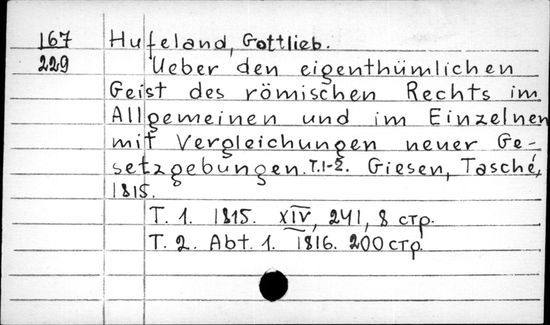 167 Hufeland, Gottlieb.
229 Ueber den eigenthümlichen
Geist des römischen Rechts im
Allgemeinen und im Einzelnen
mit Vergleichungen neuer Ge-
setzgebungen. T.1-2. Giesen, Tasché,
1815.
T. 1. 1815. XIV, 241, 8 стр.
T. 2. Abt. 1. 1816. 200 стр.